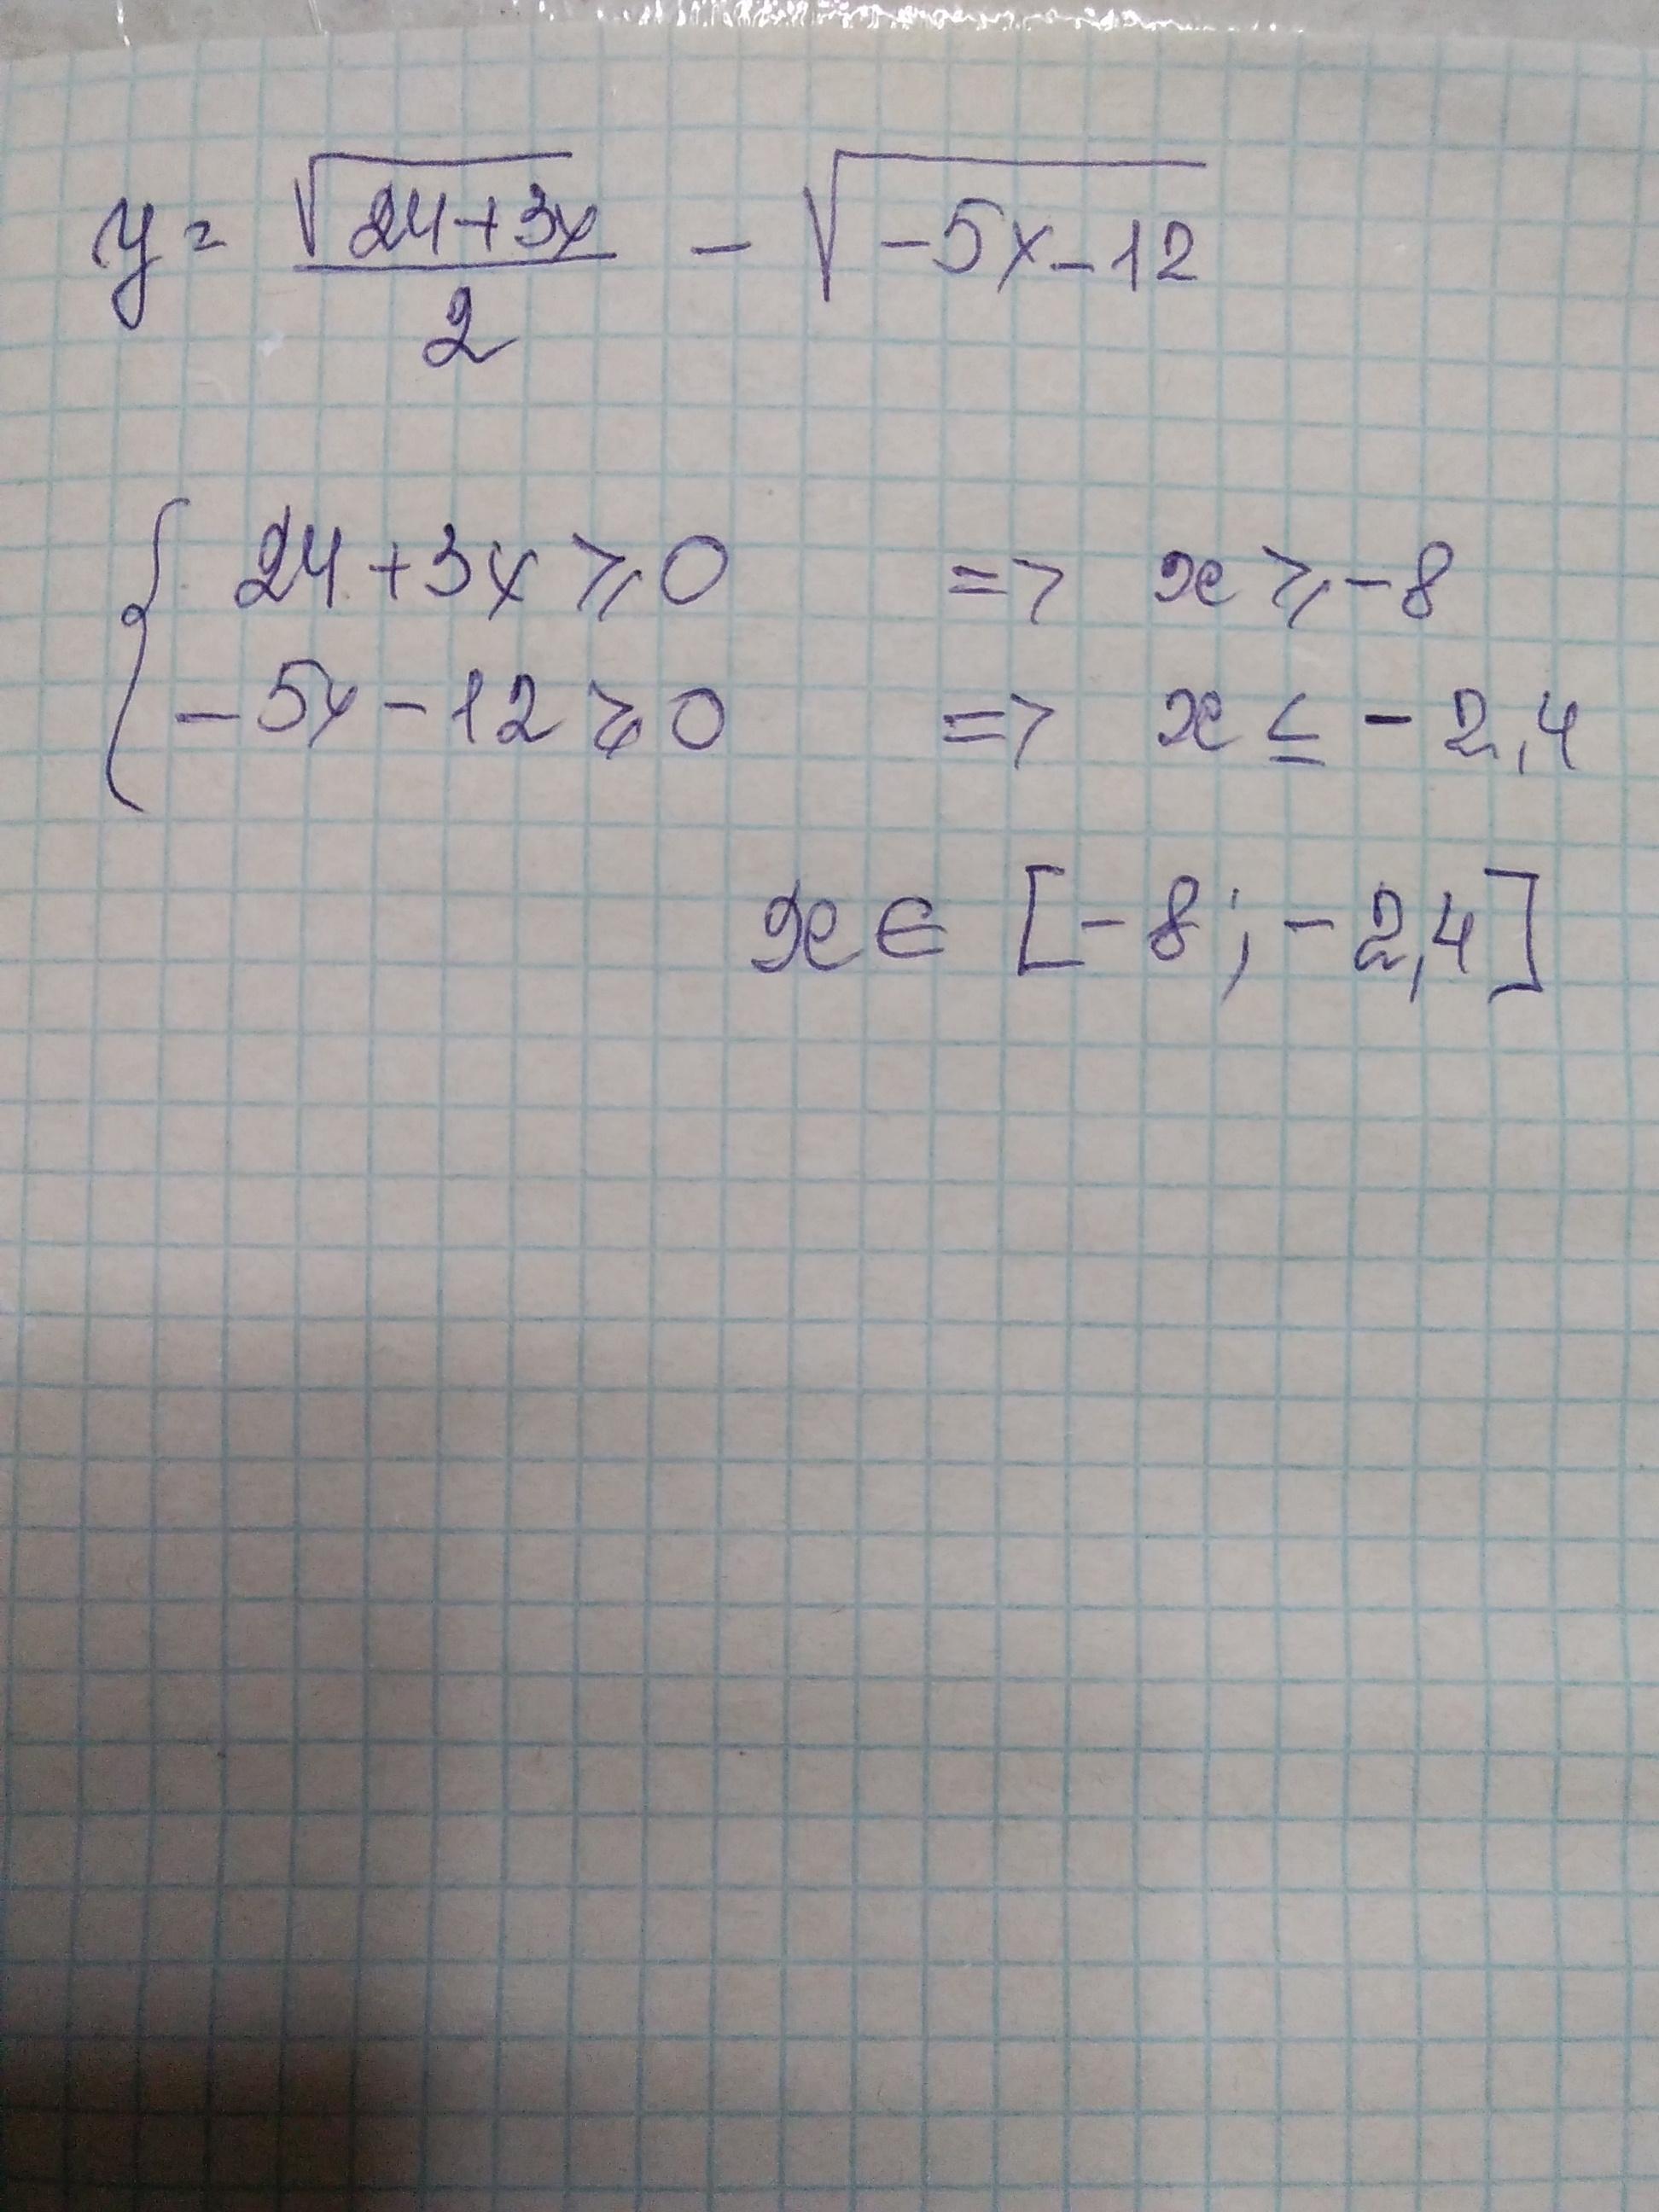 y = √(24+3x)/2 - √(-5x-12)
{ 24+3x ⩾ 0 => x ⩾ -8
-5x-12 ⩾ 0 => x ≤ -2,4
x ∈ [-8; -2,4]